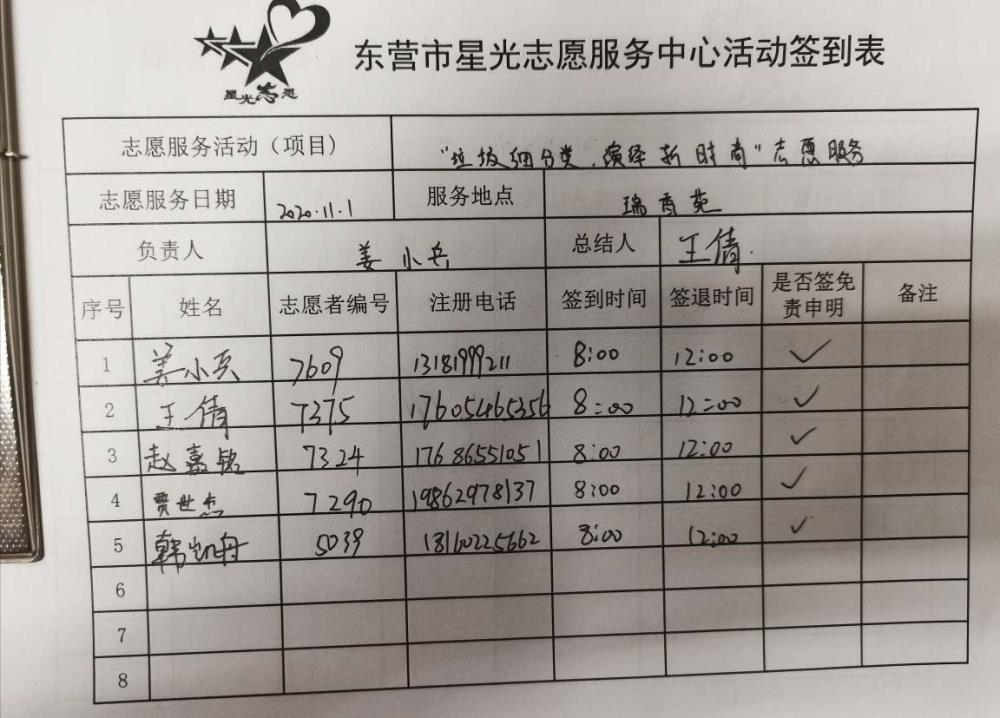 星光志愿
东营市星光志愿服务中心活动签到表
志愿服务活动（项目） "垃圾细分类，演绎新时尚"志愿服务
志愿服务日期 2020.11.1 服务地点 瑞香苑
负责人 姜小兵 总结人 王倩.
序号 姓名 志愿者编号 注册电话 签到时间 签退时间 是否签免责申明 备注
1 姜小兵 7609 13181999211 8:00 12:00 ✓
2 王倩 7375 17605465356 8:00 12:00 ✓
3 赵嘉铭 7324 17686551051 8:00 12:00 ✓
4 贾世杰 7290 19862978137 8:00 12:00 ✓
5 韩凯舟 5039 13160225662 8:00 12:00 ✓
6
7
8